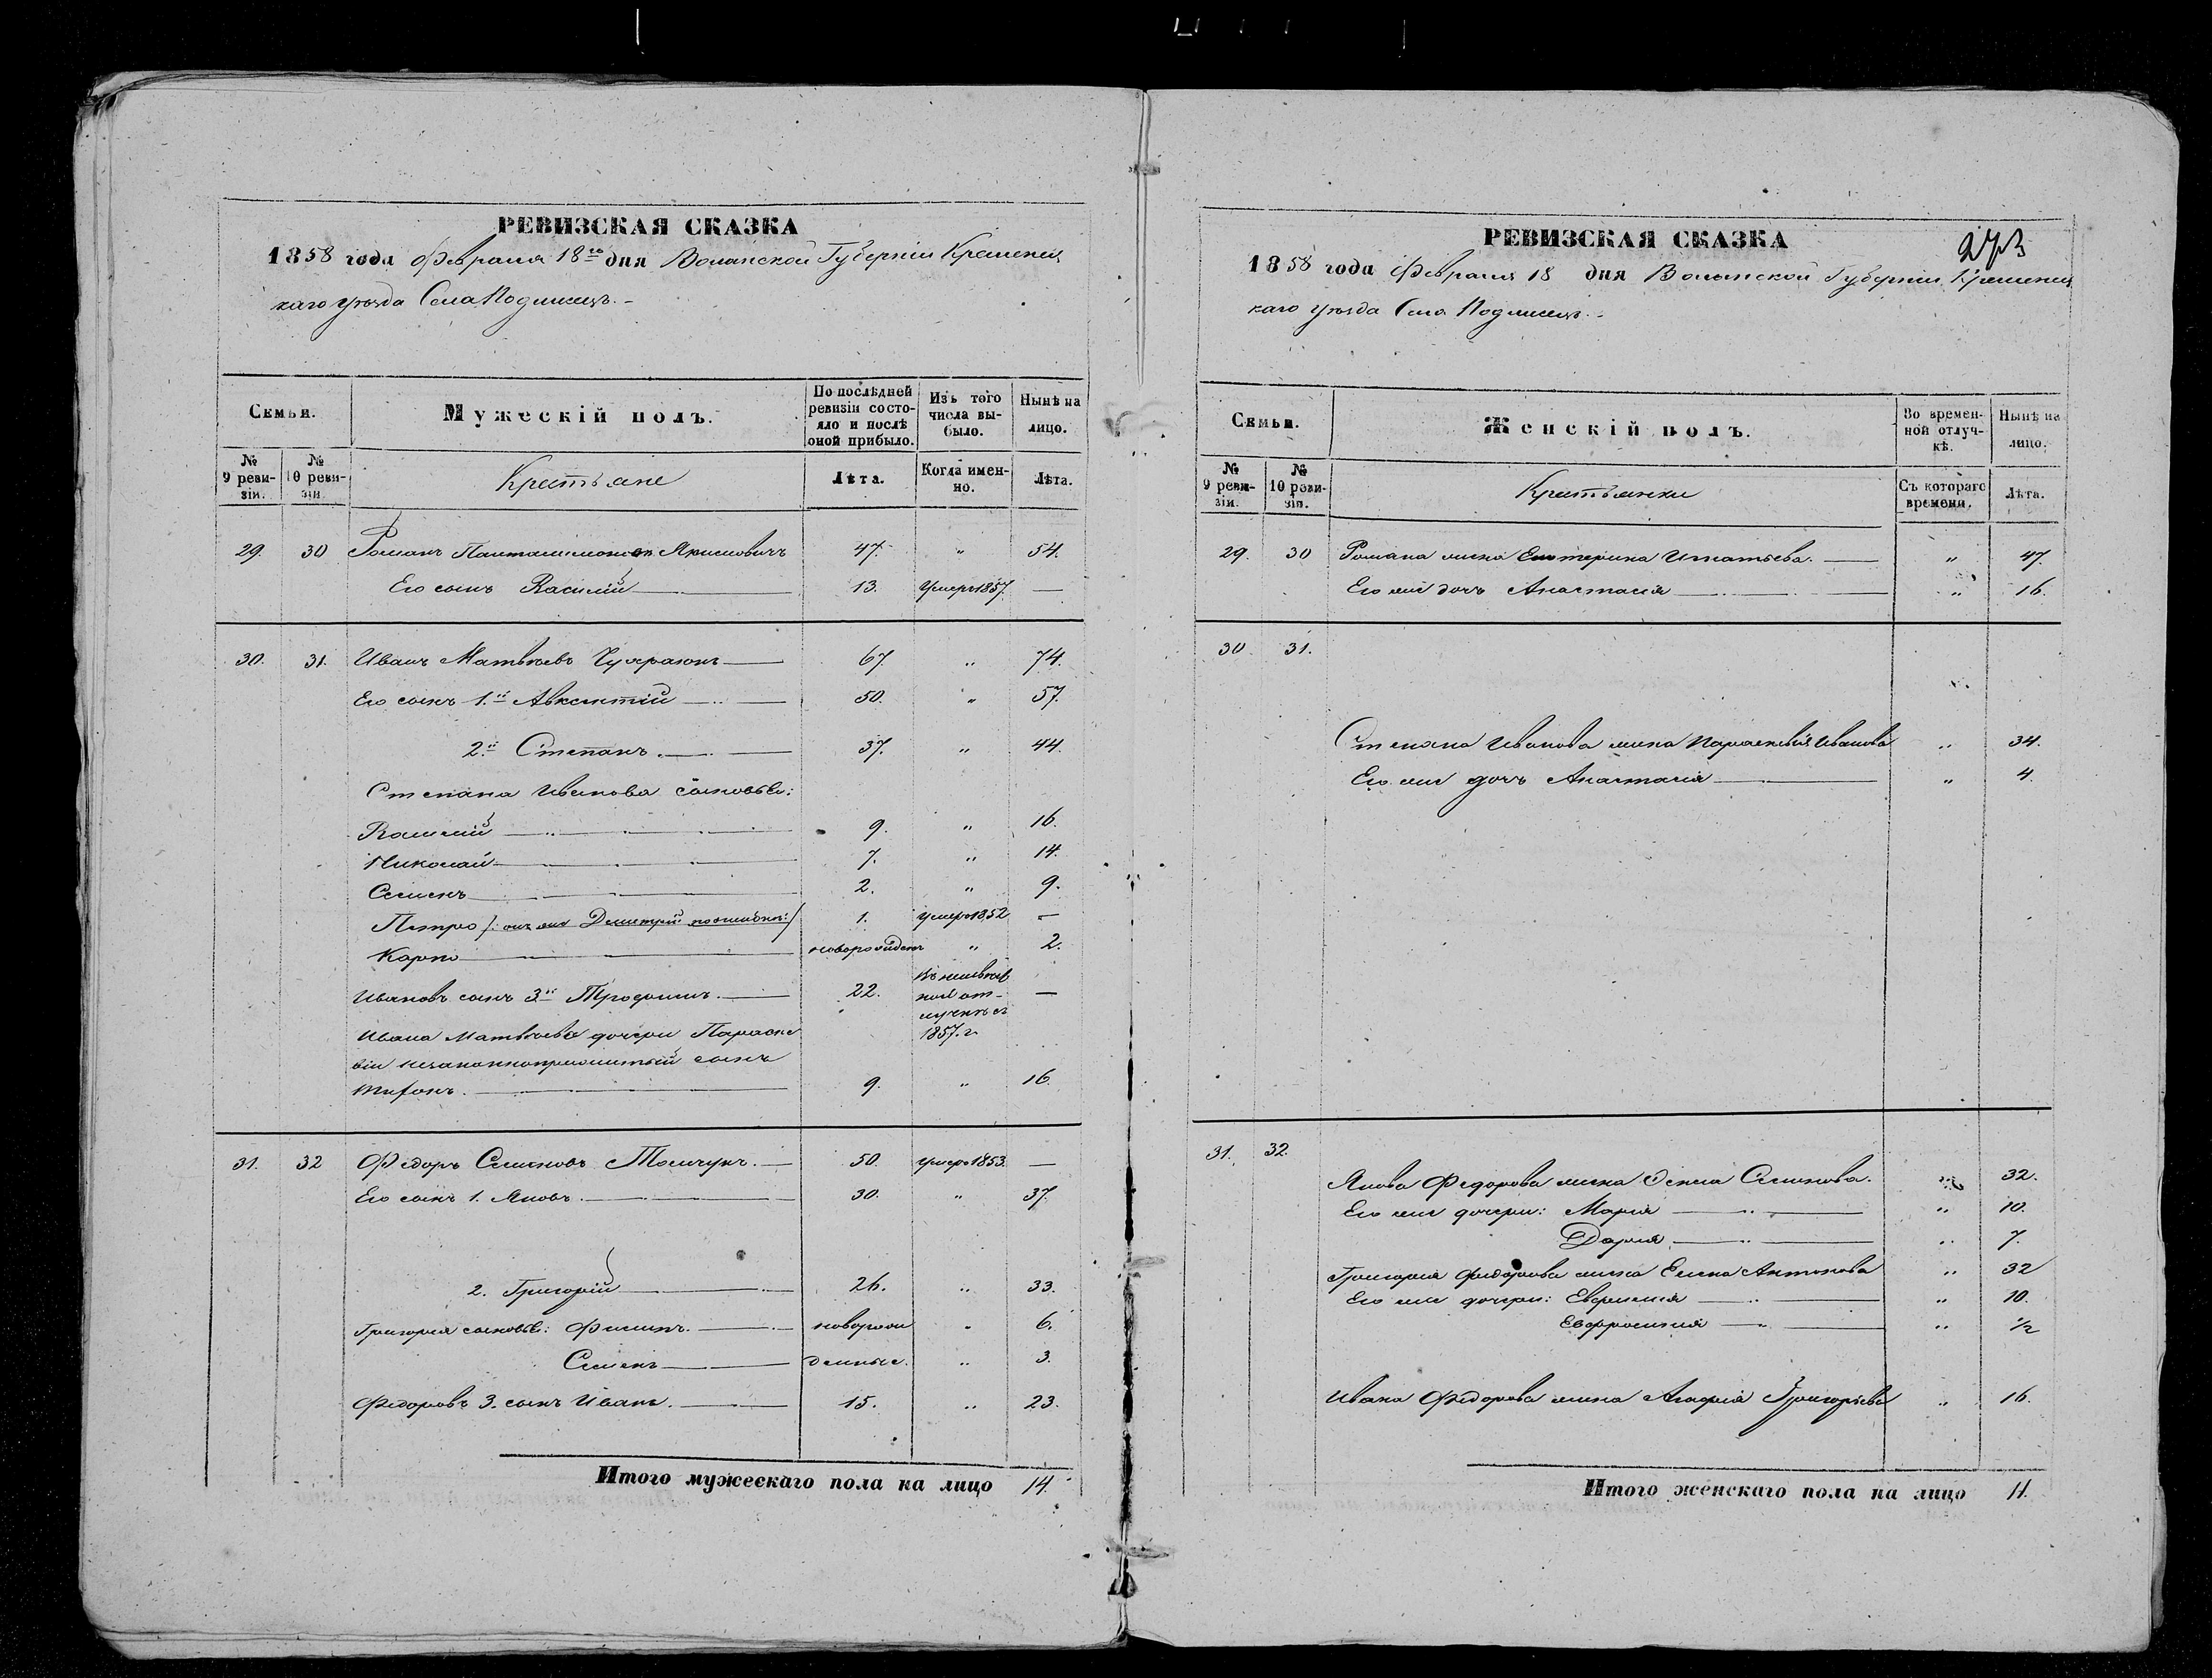 РЕВИЗСКАЯ СКАЗКА
1858 года Февраля 18го дня Волынской Губерніи Кременец
каго уѣзда Села Подлисец.-
Семьи.
Мужескій полъ.
По послѣдней ревизіи состояло и послѣ оной прибыло.
Изъ того числа выбыло.
Нынѣ на лицо.
№ 9 ревизіи.
№ 10 ревизіи
Крестьяне
Лѣта.
Когда именно.
Лѣта.
29. 30 Романъ Пантелимоновъ Якимовичъ 47. " 54.
Его сынъ Василій 13. Умеръ 1857. —
30. 31. Иванъ Матвѣевъ 67 " 74.
Его сынъ 1.й Авксентій 50. " 57.
2.й Степанъ. 37. " 44.
Степана Иванова сыновья:
Василій 9. " 16.
Николай 7. " 14.
Семенъ 2. " 9.
Петро /: онъ же Дмитрій :/ 1. умеръ 1852 —
Карпо новорожден " 2.
Ивановъ сынъ 3й Трофимъ. 22. —
1857. г.
Ивана Матвѣева дочери Параске
віи незаконноприжитый сынъ
Тифонъ. 9. " 16.
31. 32 Федоръ Семеновъ Томчукъ. 50. умеръ 1853. —
Его сынъ 1. Яковъ. 30. " 37.
2. Григорій 26. " 33.
Григорія сыновья: Филипъ. новорож " 6.
Семенъ денные. " 3.
Федоровъ 3. сынъ Иванъ. 15. " 23.
Итого мужескаго пола на лицо 14.
РЕВИЗСКАЯ СКАЗКА
273
1858 года Февраля 18 дня Волынской Губерніи Кременец
каго уѣзда Села Подлисец.-
Семьи.
Женскій полъ.
Во временной отлучкѣ.
Нынѣ на лицо.
№ 9 ревизіи.
№ 10 ревизіи.
Крестьянки
Съ котораго времени.
Лѣта.
29. 30 Романа жена Екатерина Игнатьева. " 47.
Его же дочь Анастасія " 16.
30. 31.
Степана Иванова жена Параскевія Иванова " 34.
Его же дочь Анастасія " 4.
31. 32.
Якова Федорова жена Семенова. " 32.
Его же дочери: Марія " 10.
Дарія " 7.
Григорія Федорова жена Елена Антонова " 32
Его же дочери: Евфимія " 10.
Евфросинія " 1/2
Ивана Федорова жена Агафія Григорьева " 16.
Итого женскаго пола на лицо 11.